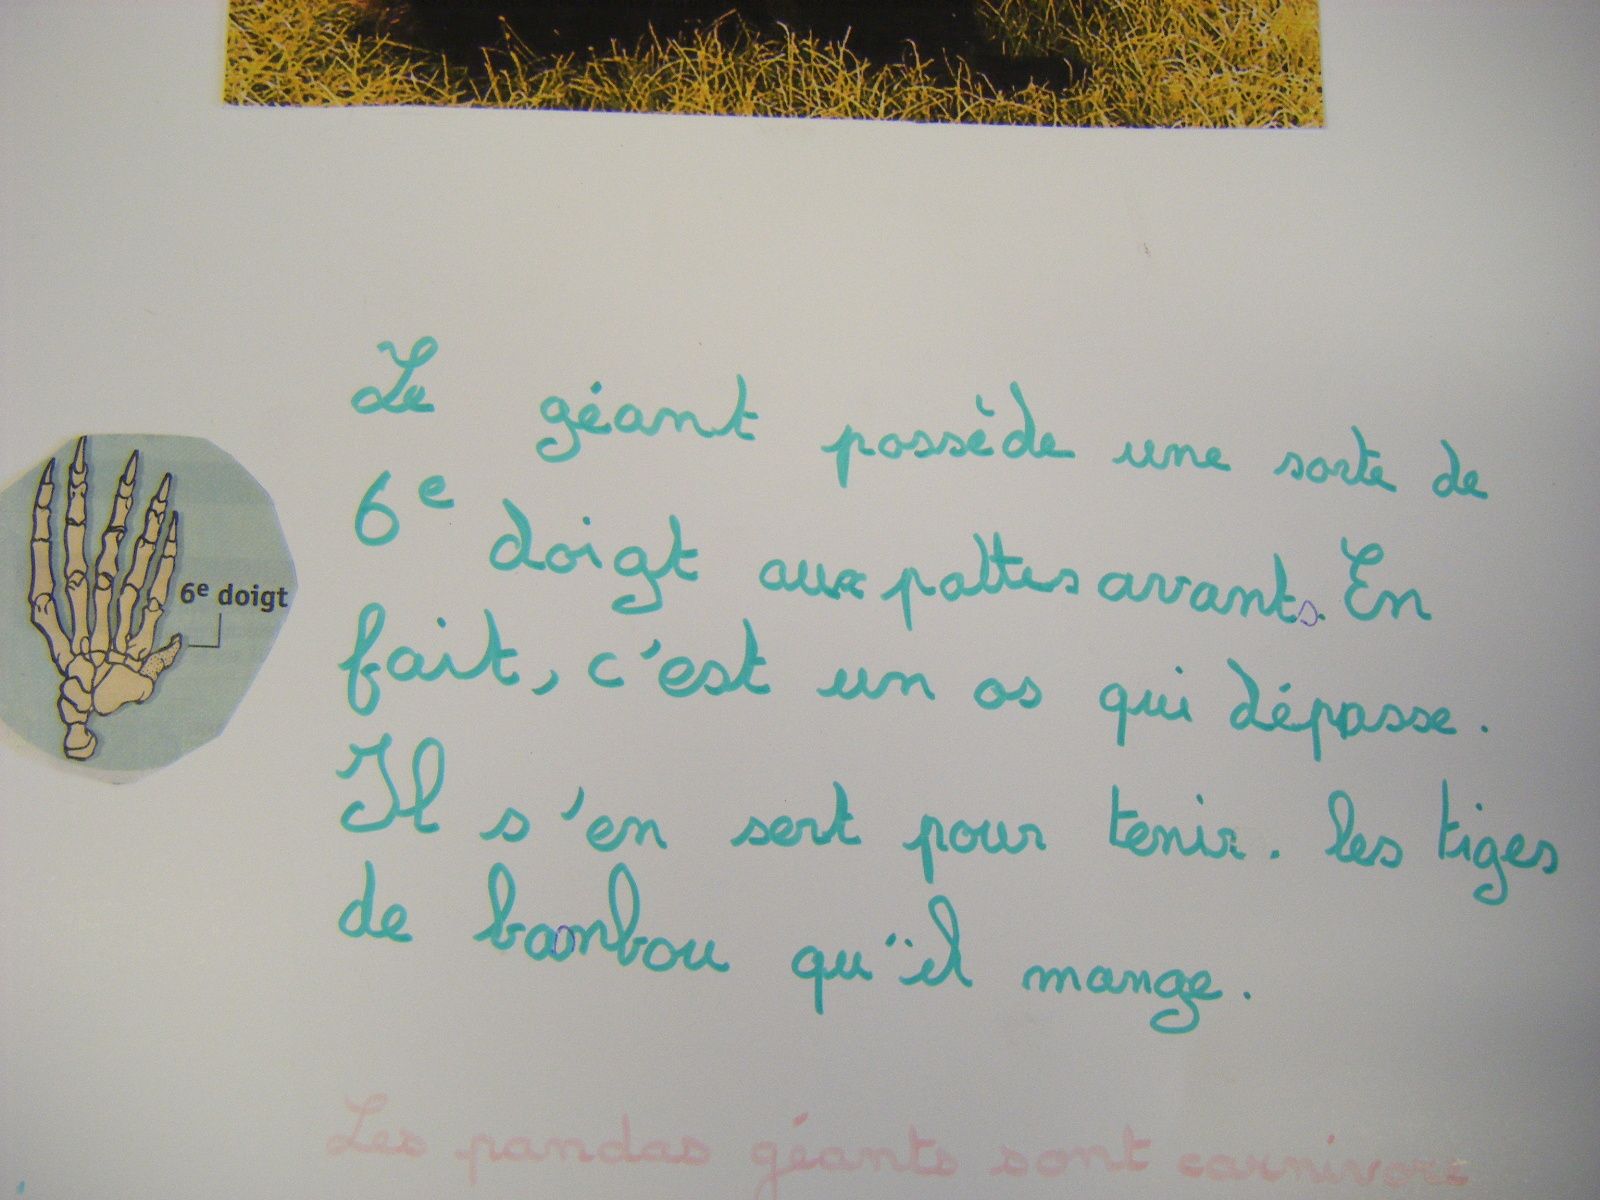 Le géant possède une sorte de
6e doigt aux pattes avants. En
fait, c'est un os qui dépasse.
Il s'en sert pour tenir. les tiges
de bambou qu'il mange.
6e doigt
Les pandas géants sont carnivore